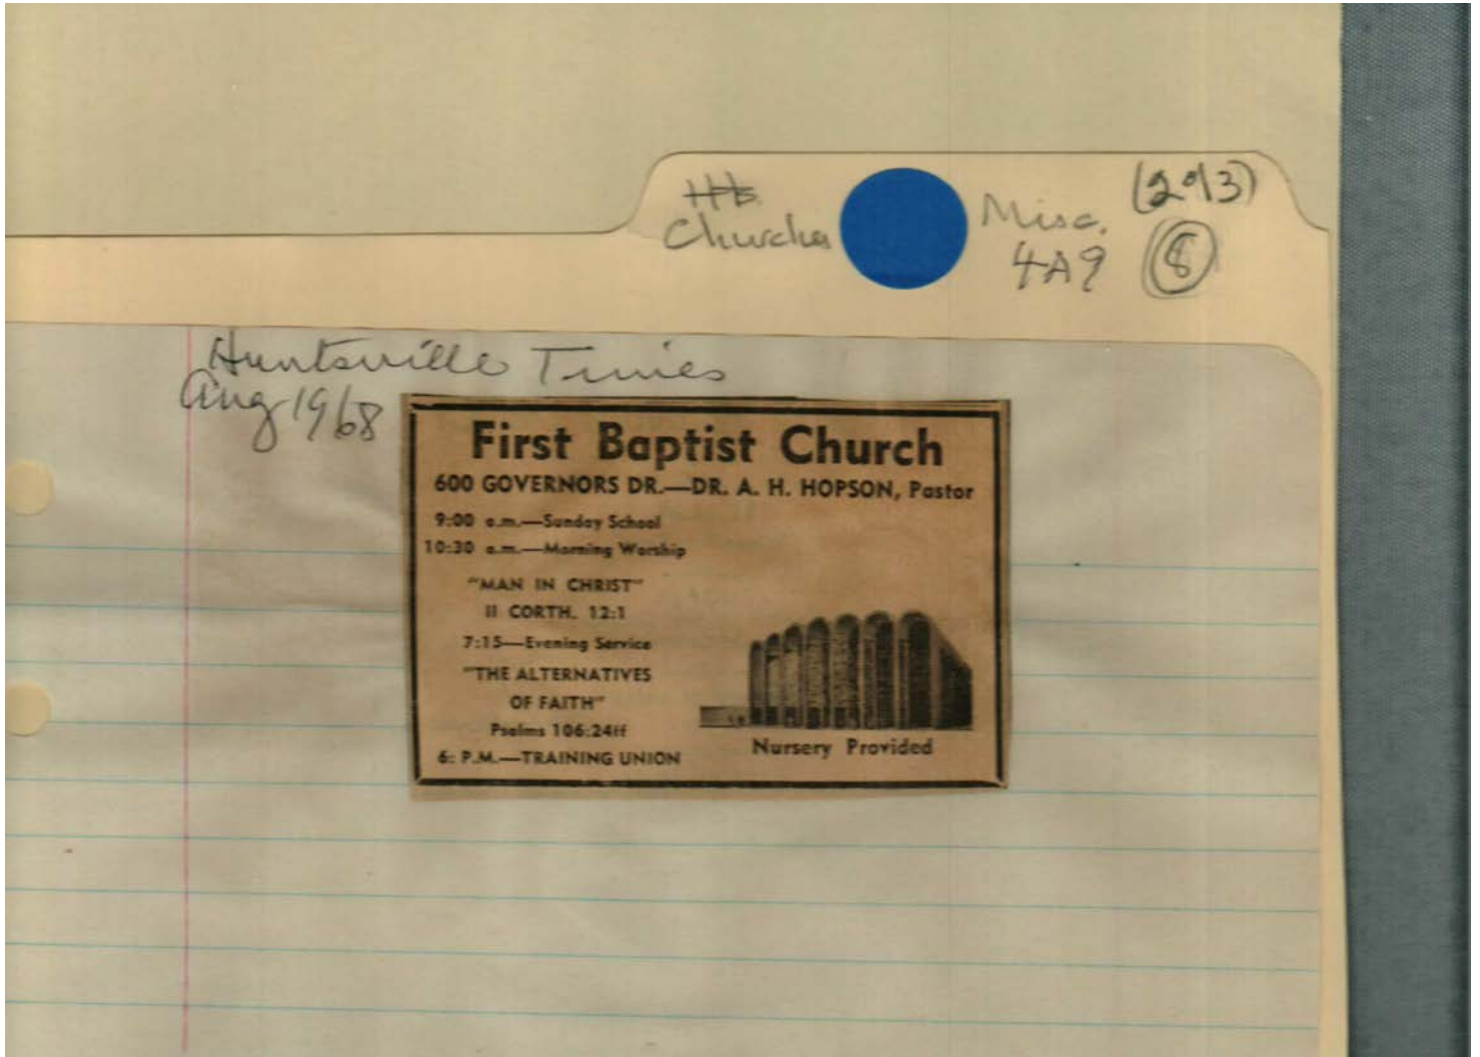 Hts.
Churches
Misc.
4A9
(2 of 3)
8
Huntsville Times
Aug 1968
First Baptist Church
600 GOVERNORS DR.—DR. A. H. HOPSON, Pastor
9:00 a.m.—Sunday School
10:30 a.m.—Morning Worship
"MAN IN CHRIST"
II CORTH. 12:1
7:15—Evening Service
"THE ALTERNATIVES
OF FAITH"
Psalms 106:24ff
6: P.M.—TRAINING UNION
Nursery Provided